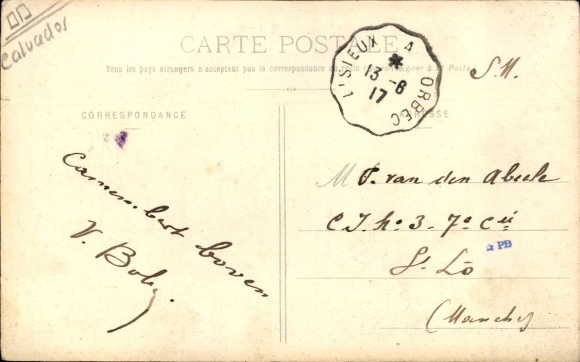 Calvados
CARTE POSTALE
Tous les pays étrangers n'acceptent pas la correspondance au recto (se renseigner à la Poste)
LISIEUX A ORBEC
13-8
17
S.M.
CORRESPONDANCE
ADRESSE
Camembert boven
V. Boby.
M P. van den Abeele
C.I. No 3 - 7e Cie
PB
St Lô
(Manche)